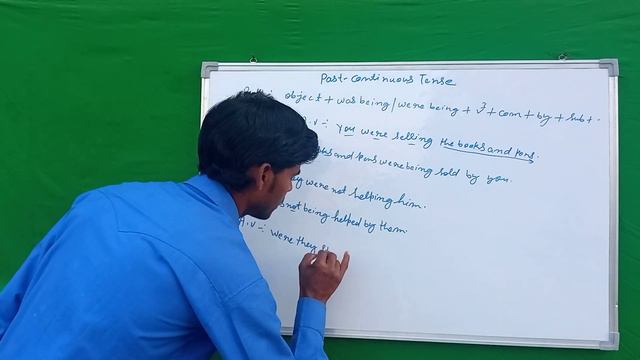 Past-Continuous Tense
object + was being / were being + v³ + com + by + subt.
A.V :- You were selling the books and pens.
and pens were being sold by you.
were not helping him.
not being helped by them.
A.V :- were they